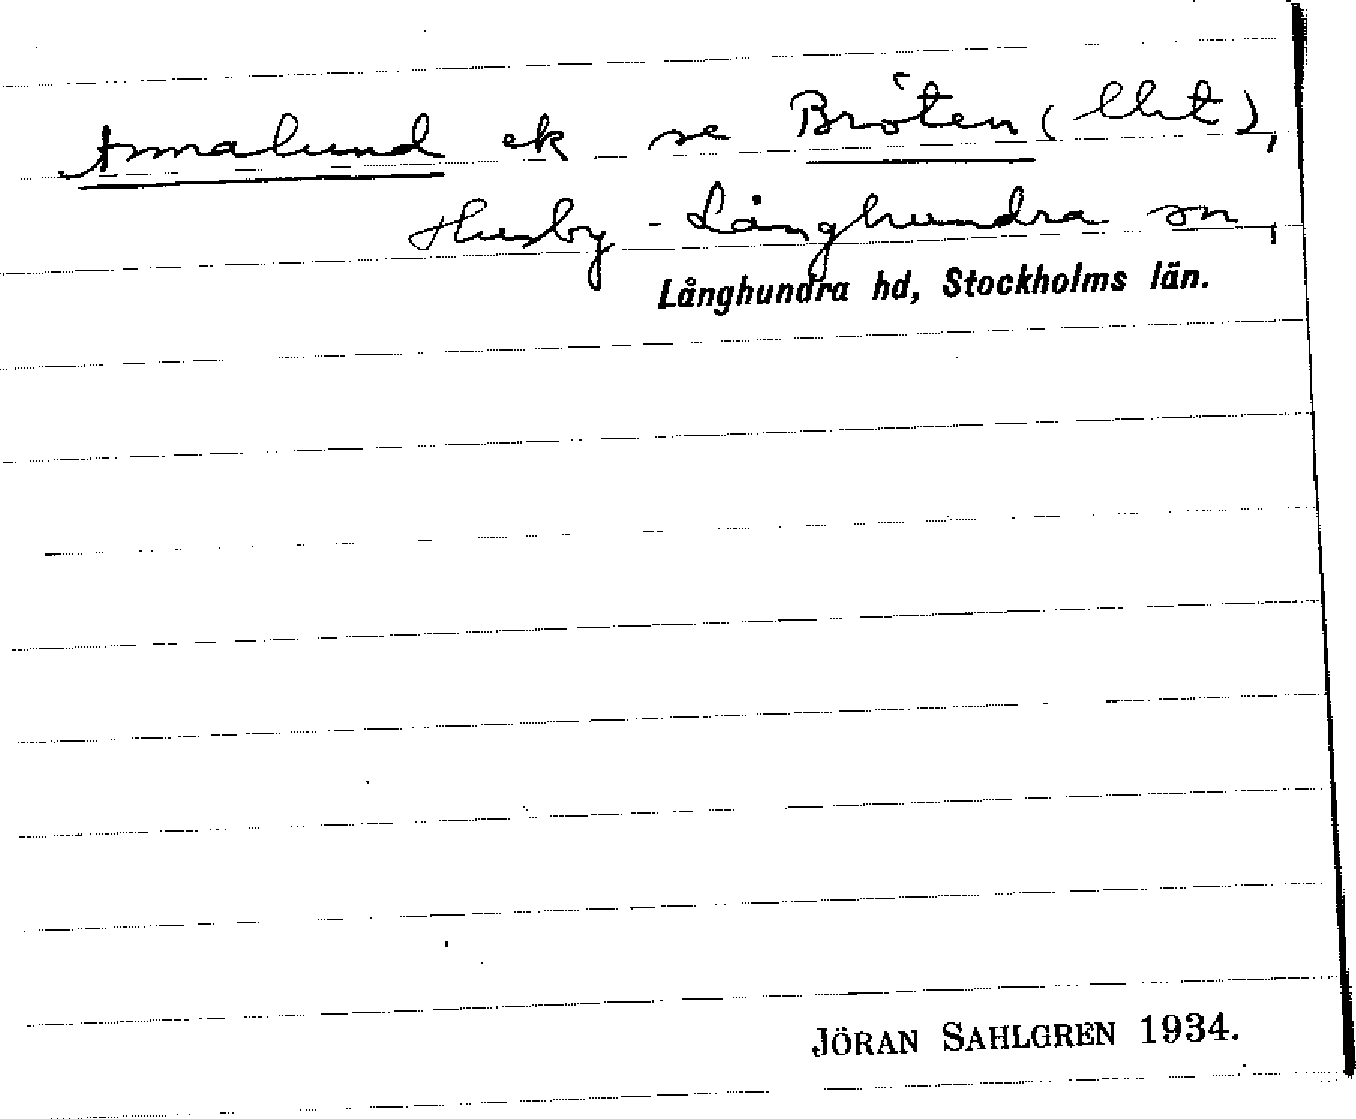 Annalund ek se Bråten (lht),
Husby-Långhundra sn,
Långhundra hd, Stockholms län.
JÖRAN SAHLGREN 1934.